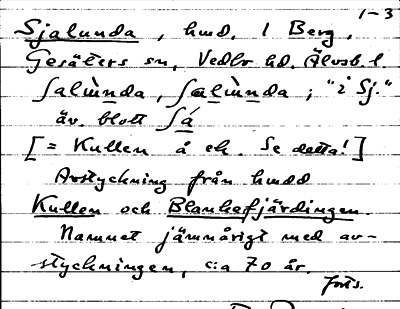 1-3
Sjalunda, hmd. 1 Berg,
Gesäters sn, Vedbo hd. Älvsb. l.
ʃalùnda, ʃalùnda; "i Sj."
äv. blott ʃá
[= Kullen å ek. Se detta!]
Avstyckning från hmdd
Kullen och Blankefjärdingen.
Namnet jämnårigt med av-
styckningen, c:a 70 år.
forts.